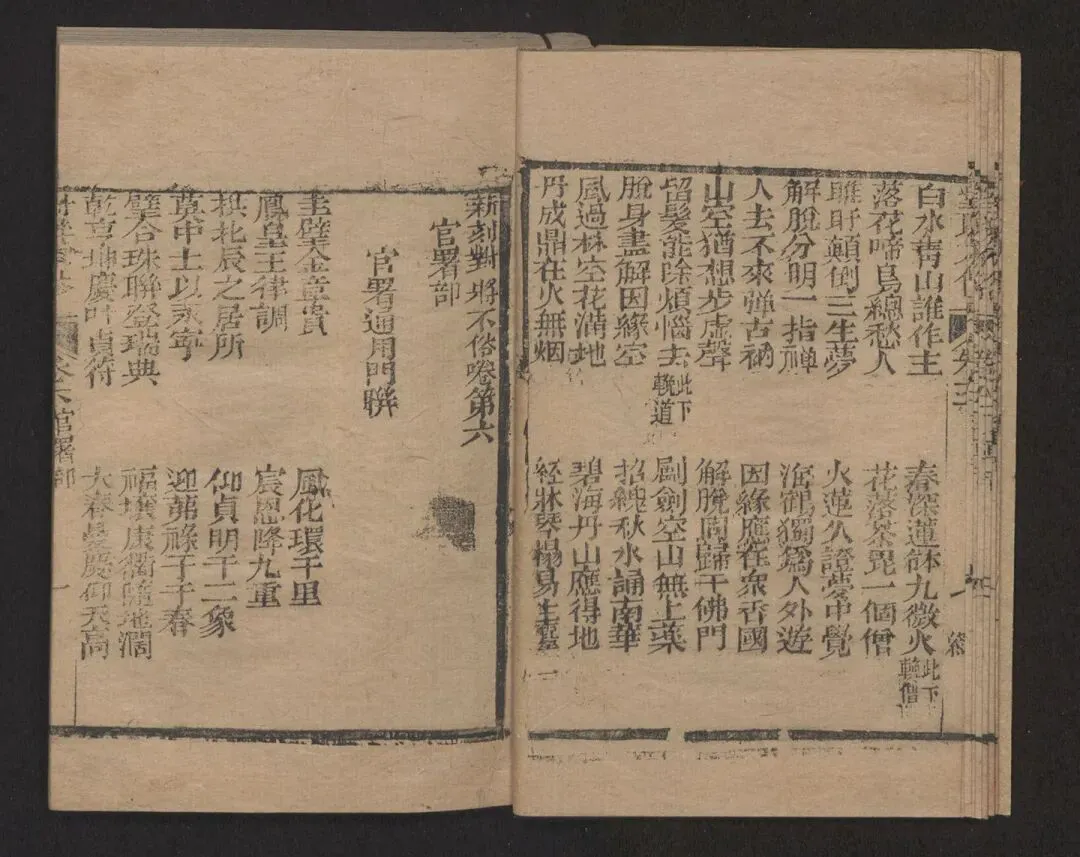 白水靑山誰作主　春深蓮鉢九微火此下輓僧
落花啼鳥總愁人　花落茶毘一個僧
睢盱顛倒三生夢　火蓮久證夢中覺
解脫分明一指禅　海鶴獨爲人外遊
人去不來弹古衲　因緣應在衆香國
山空猶想步虛聲　解脫同歸千佛門
留髮能除煩惱去此下輓道　劚劍空山無上藥
脫身盡解因緣空　招魂秋水誦南華
風過林空花滿地　碧海丹山應得地
丹成鼎在火無烟　經牀琴榻易生塵
新刻對類不俗卷第六
官署部
官署通用門聯
圭璧金章賞　風化環千里
鳳皇玉律調　宸恩降九重
拱北辰之居所　仰貞明于二象
奠中土以永寧　迎茀祿于千春
璧合珠聯登瑞典　福壤康衢隨地濶
乾亨坤慶叶貞符　大春景慶仰天高
卷六官署部　一